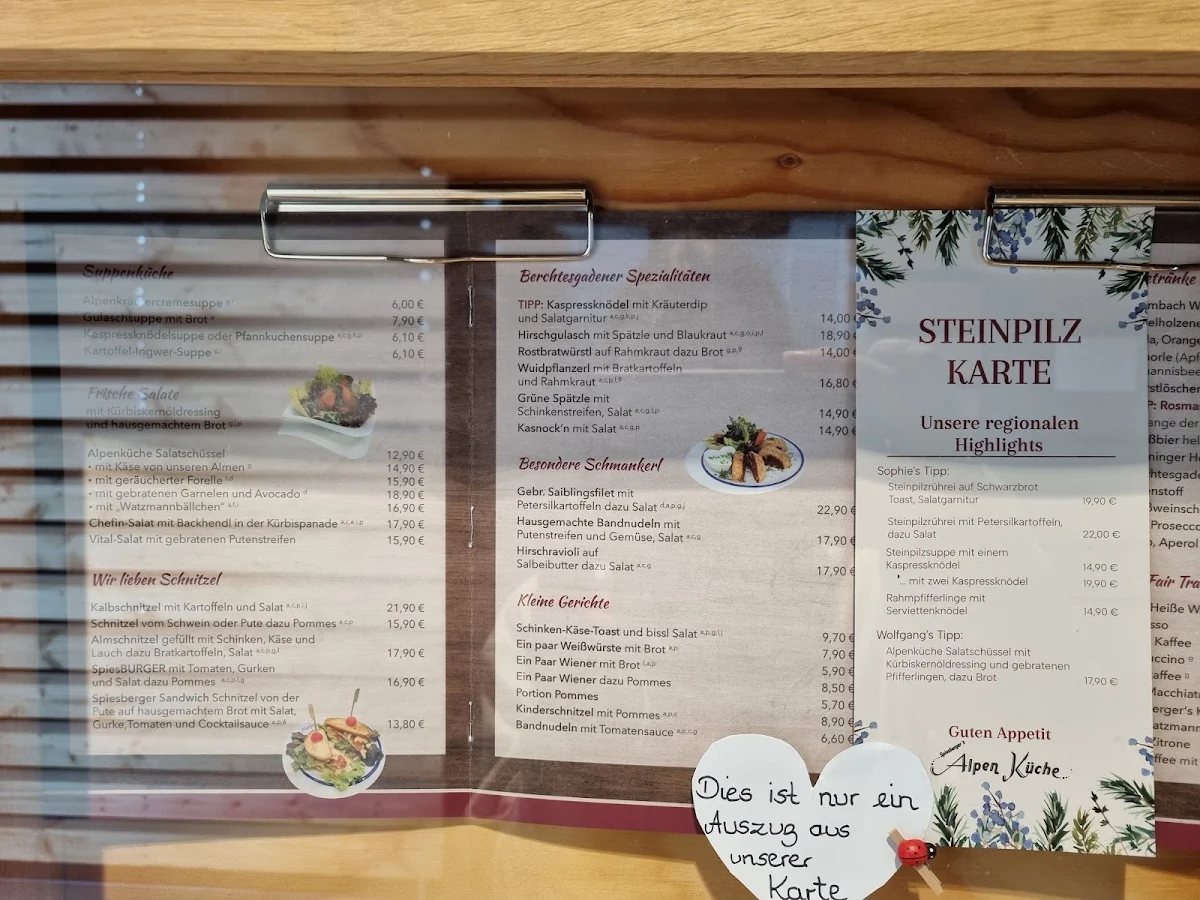 Suppenküche
Alpenkräutercremesuppe a,i 6,00 €
Gulaschsuppe mit Brot a 7,90 €
Kaspressknödelsuppe oder Pfannkuchensuppe 6,10 €
Kartoffel-Ingwer-Suppe 6,10 €
Frische Salate
mit Kürbiskernöldressing
und hausgemachtem Brot
Alpenküche Salatschüssel 12,90 €
• mit Käse von unseren Almen g 14,90 €
• mit geräucherter Forelle 15,90 €
• mit gebratenen Garnelen und Avocado d 18,90 €
• mit „Watzmannbällchen" 16,90 €
Chefin-Salat mit Backhendl in der Kürbispanade 17,90 €
Vital-Salat mit gebratenen Putenstreifen 15,90 €
Wir lieben Schnitzel
Kalbschnitzel mit Kartoffeln und Salat 21,90 €
Schnitzel vom Schwein oder Pute dazu Pommes a,c,p 15,90 €
Almschnitzel gefüllt mit Schinken, Käse und
Lauch dazu Bratkartoffeln, Salat 17,90 €
SpiesBURGER mit Tomaten, Gurken
und Salat dazu Pommes 16,90 €
Spiesberger Sandwich Schnitzel von der
Pute auf hausgemachtem Brot mit Salat,
Gurke,Tomaten und Cocktailsauce 13,80 €
Berchtesgadener Spezialitäten
TIPP: Kaspressknödel mit Kräuterdip
und Salatgarnitur 14,00
Hirschgulasch mit Spätzle und Blaukraut 18,90
Rostbratwürstl auf Rahmkraut dazu Brot 14,00
Wuidpflanzerl mit Bratkartoffeln
und Rahmkraut 16,80 €
Grüne Spätzle mit
Schinkenstreifen, Salat 14,90 €
Kasnock'n mit Salat a,c,g,p 14,90 €
Besondere Schmankerl
Gebr. Saiblingsfilet mit
Petersilkartoffeln dazu Salat 22,90 €
Hausgemachte Bandnudeln mit
Putenstreifen und Gemüse, Salat a,c,g 17,90 €
Hirschravioli auf
Salbeibutter dazu Salat a,c,g 17,90 €
Kleine Gerichte
Schinken-Käse-Toast und bissl Salat 9,70 €
Ein paar Weißwürste mit Brot a,p 7,90 €
Ein Paar Wiener mit Brot 5,90 €
Ein Paar Wiener dazu Pommes 8,50 €
Portion Pommes 5,70 €
Kinderschnitzel mit Pommes a,p,c 8,90 €
Bandnudeln mit Tomatensauce a,p,c,g 6,60 €
STEINPILZ
KARTE
Unsere regionalen
Highlights
Sophie's Tipp:
Steinpilzrührei auf Schwarzbrot
Toast, Salatgarnitur 19,90 €
Steinpilzrührei mit Petersilkartoffeln,
dazu Salat 22,00 €
Steinpilzsuppe mit einem
Kaspressknödel 14,90 €
"... mit zwei Kaspressknödel 19,90 €
Rahmpfifferlinge mit
Serviettenknödel 14,90 €
Wolfgang's Tipp:
Alpenküche Salatschüssel mit
Kürbiskernöldressing und gebratenen
Pfifferlingen, dazu Brot 17,90 €
Guten Appetit
Spiesberger's
Alpen Küche
Dies ist nur ein
Auszug aus
unserer
Karte